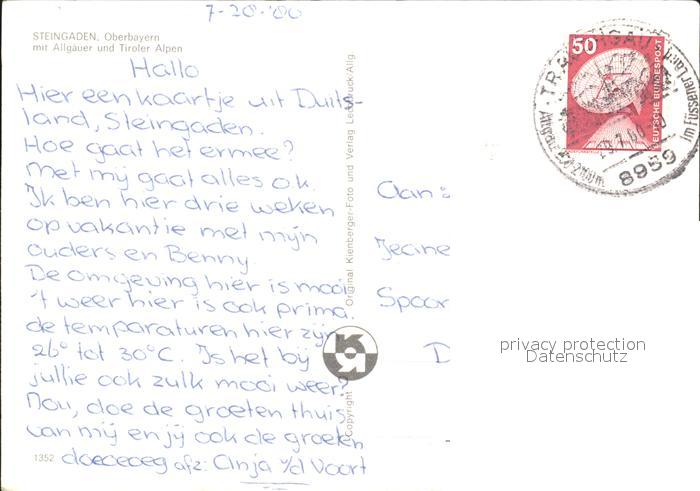 7-28-'80
STEINGADEN, Oberbayern
mit Allgäuer und Tiroler Alpen
Hallo
Hier een kaartje uit Duits-
land, Steingaden.
Hoe gaat het ermee?
Met mij gaat alles o.k.
Ik ben hier drie weken
op vakantie met mijn
ouders en Benny.
De omgeving hier is mooi
't weer hier is ook prima.
de temparaturen hier zijn
26° tot 30°C. Is het bij
jullie ook zulk mooi weer?
Nou, doe de groeten thuis
van mij en jij ook de groeten
1352 doeoeoeg afz: Anja v/d Voort
Copyright
Original Kienberger-Foto und Verlag Lechbruck-Allg
Aan:
Jeane
Spoor
D
50
DEUTSCHE BUNDESPOST
im Füssener Land
8959
privacy protection
Datenschutz